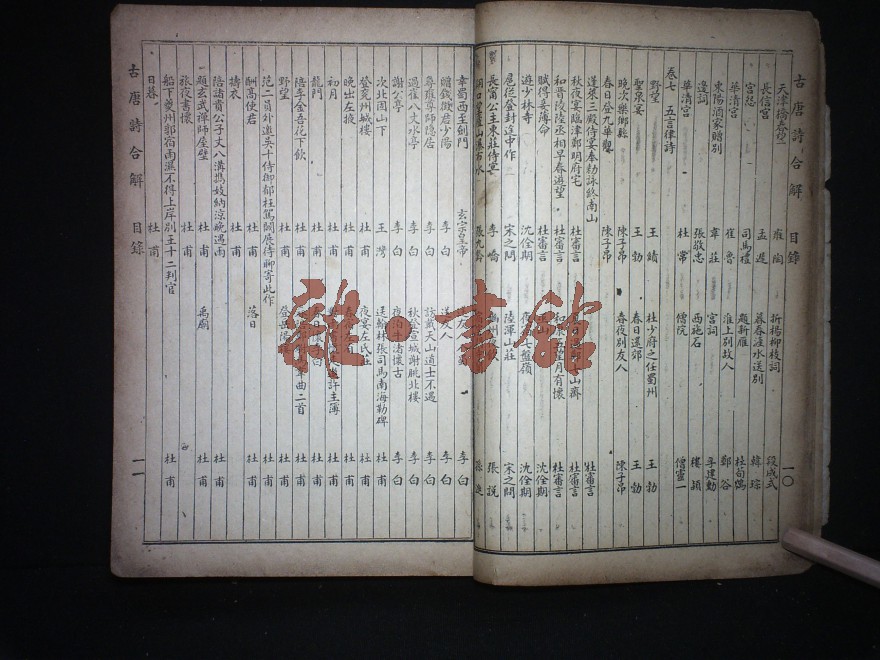 古唐詩合解 目錄 一〇
天津橋春望 雍陶 折楊柳枝詞 段成式
長信宮 孟遲 暮春滻水送別 韓琮
宮怨 司馬禮 題新雁 杜荀鶴
華清宮 崔魯 淮上別故人 鄭谷
東陽酒家贈別 韋莊 宮詞 李建勳
邊詞 張敬忠 西施石 樓穎
華清宮 杜常 僧院 僧靈一
卷七 五言律詩
野望 王績 杜少府之任蜀州 王勃
聖泉宴 王勃 春日還郊 王勃
晚次樂鄉縣 陳子昂 春夜別友人 陳子昂
春日登九華觀 陳子昂
蓬萊三殿侍宴奉勅詠終南山 杜審言
秋夜宴臨津鄭明府宅 杜審言
和晉陵陸丞相早春遊望 杜審言 月有懷 杜審言
賦得妾薄命 沈佺期 沈佺期
遊少林寺 沈佺期 七盤嶺 沈佺期
扈從登封途中作 宋之問 陸渾山莊 宋之問
長甯公主東莊侍宴 李嶠 張說
張九齡 孫逖
幸蜀西至劍門 玄宗皇帝 李白
贈錢徵君少陽 李白 送友人 李白
尋雍尊師隱居 李白 訪戴天山道士不遇 李白
過崔八丈水亭 李白 秋登宣城謝朓北樓 李白
謝公亭 李白 夜泊牛渚懷古 李白
次北固山下 王灣 送翰林張司馬南海勒碑 杜甫
登兗州城樓 杜甫 夜宴左氏莊 杜甫
晚出左掖 杜甫 杜甫
初月 杜甫 許主簿 杜甫
龍門 杜甫 杜甫
陪李金吾花下飲 杜甫 曲二首 杜甫
野望 杜甫 登岳陽樓 杜甫
范二員外邈吳十侍御郁枉駕闕展侍聊寄此作
酬高使君 杜甫 落日 杜甫
擣衣 杜甫
陪諸貴公子丈八溝攜妓納涼晚遇雨 杜甫
題玄武禪師屋壁 杜甫 禹廟 杜甫
旅夜書懷 杜甫
船下夔州郭宿雨濕不得上岸別王十二判官
日暮 杜甫 杜甫
古唐詩合解 目錄 一一
雜·書館